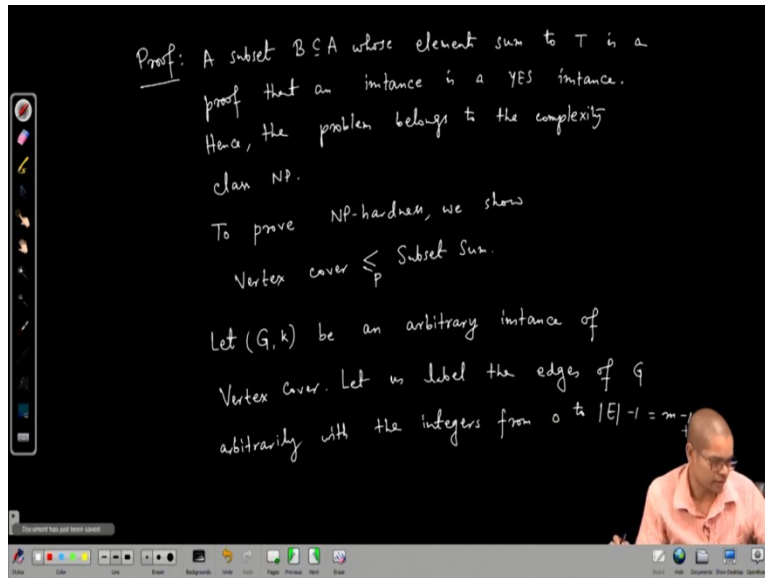 Proof: A subset B ⊆ A whose element sum to T is a
proof that an intance is a YES intance.
Hence, the problem belongs to the complexity
class NP.
To prove NP-hardness, we show
Vertex cover ≤p Subset Sum.
Let (G, k) be an arbitrary instance of
Vertex Cover. Let us label the edges of G
arbitrarily with the integers from 0 to |E| - 1 = m - 1
Document has just been saved
Color
Line
Eraser
Backgrounds
Undo
Pages
Previous
Next
Erase
Web
Documents
Show Desktop